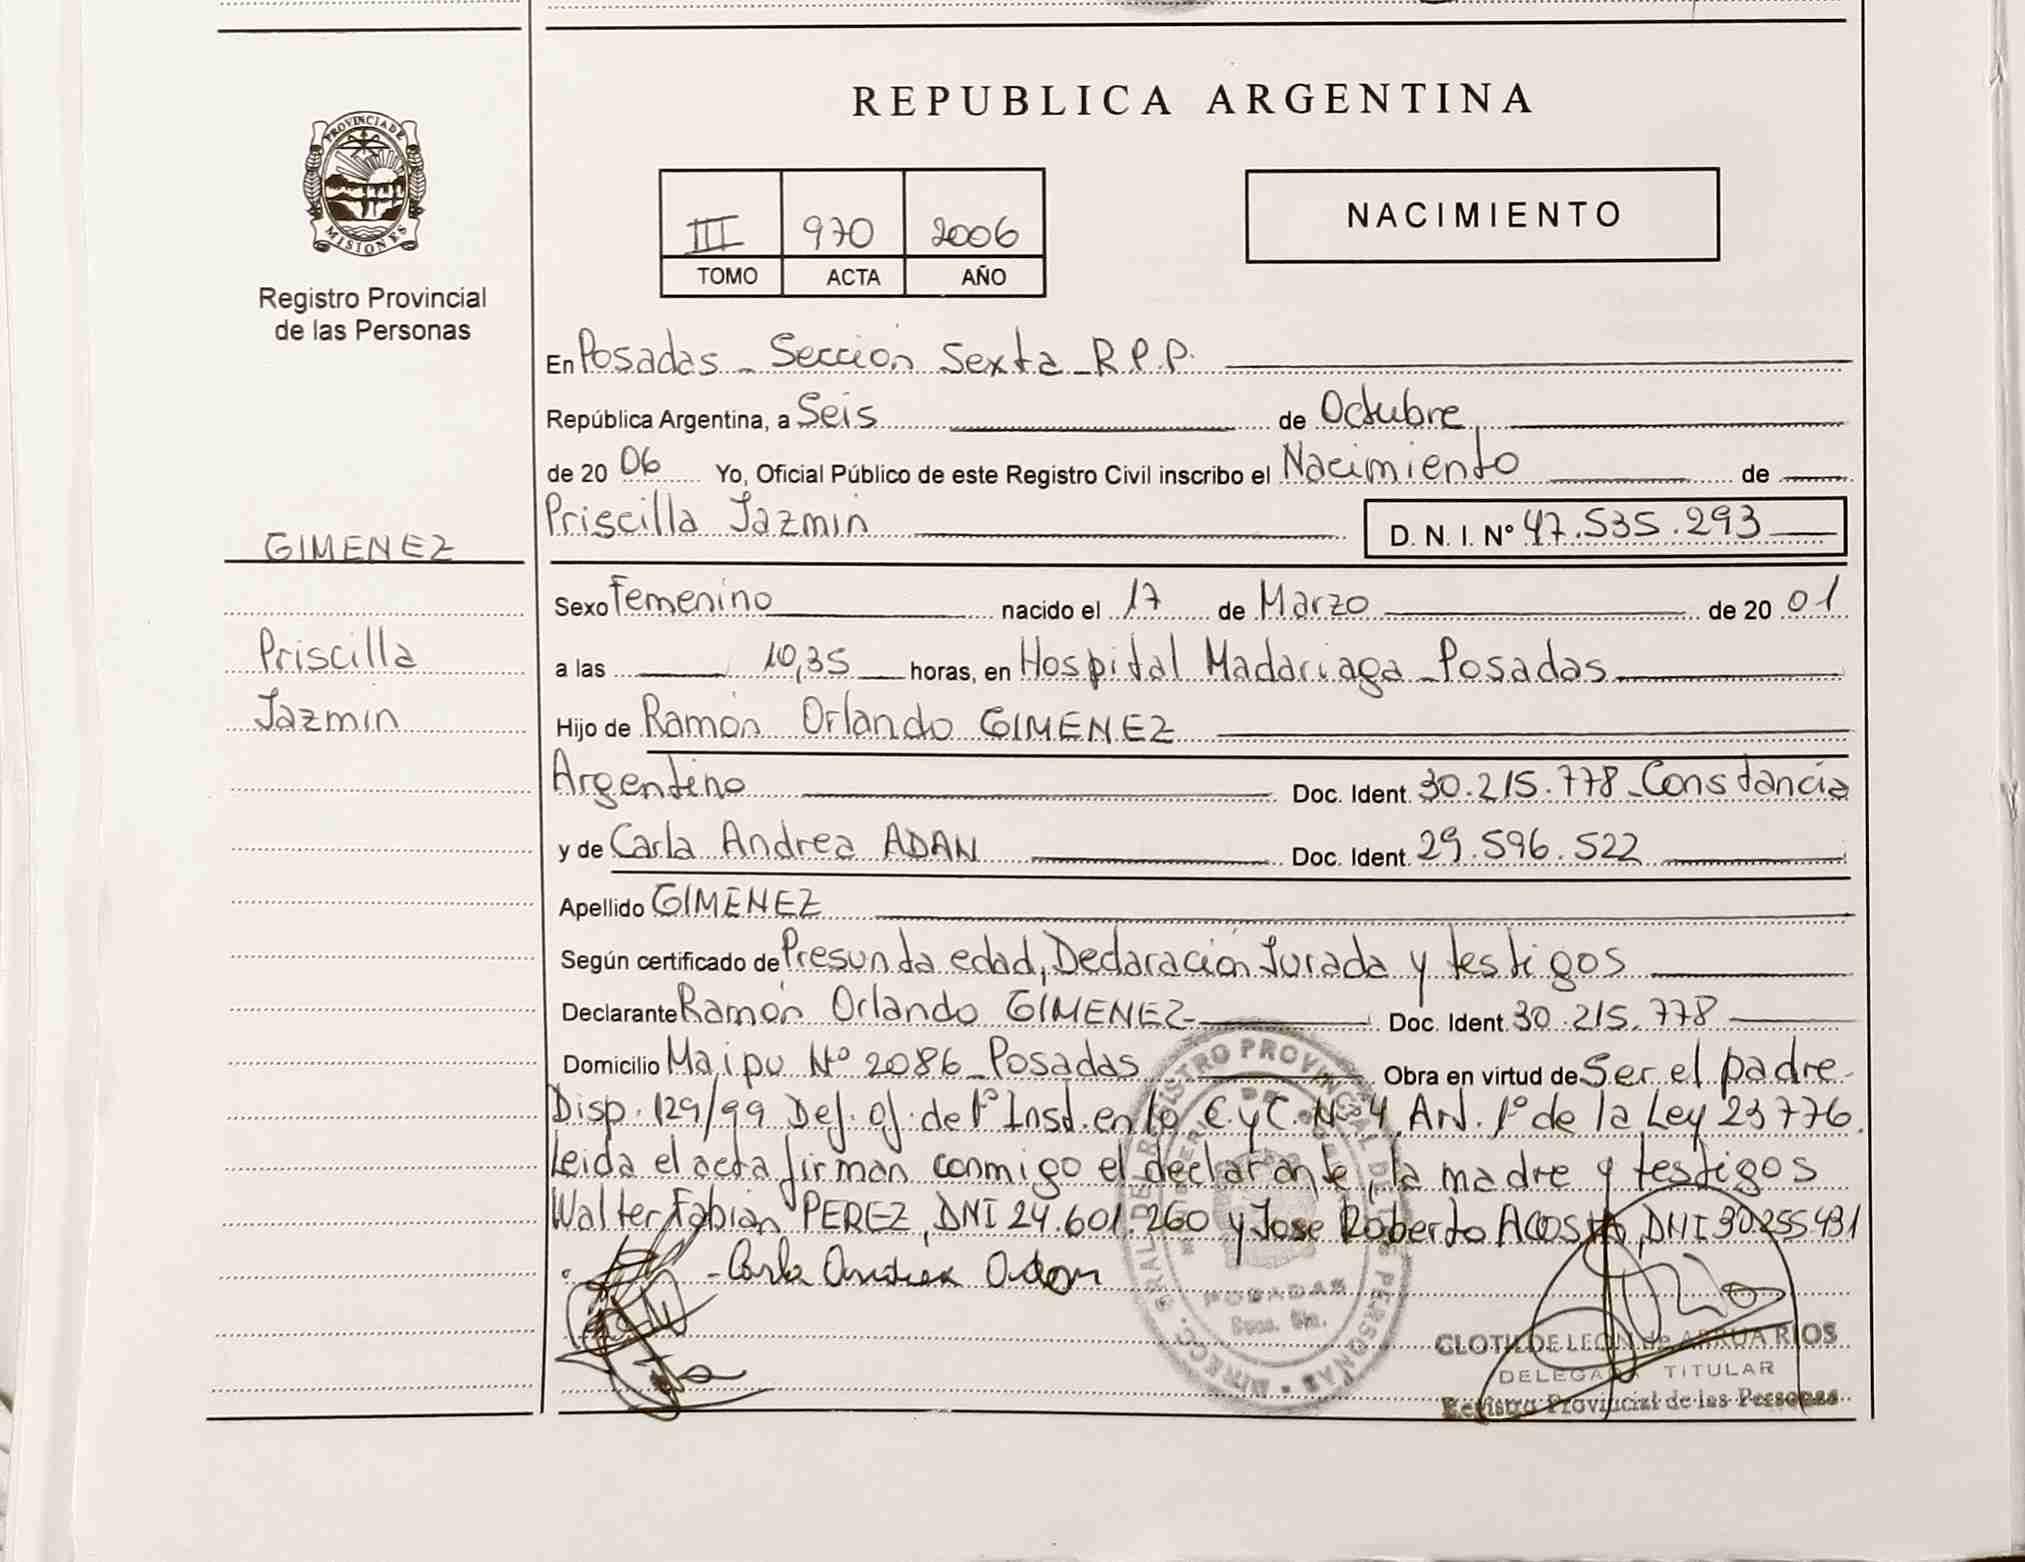 REPUBLICA ARGENTINA
PROVINCIA DE
MISIONES
Registro Provincial
de las Personas
III 970 2006
TOMO ACTA AÑO
NACIMIENTO
En Posadas - Sección Sexta - R.P.P.
República Argentina, a Seis de Octubre
de 20 06 Yo, Oficial Público de este Registro Civil inscribo el Nacimiento de
Priscilla Jazmin D. N. I. Nº 47.535.293
GIMENEZ
Priscilla
Jazmin
Sexo Femenino nacido el 17 de Marzo de 20 01
a las 10,35 horas, en Hospital Madariaga - Posadas
Hijo de Ramón Orlando GIMENEZ
Argentino Doc. Ident. 30.215.778 - Constancia
y de Carla Andrea ADAN Doc. Ident. 29.596.522
Apellido GIMENEZ
Según certificado de Presunta edad, Declaración Jurada y testigos
Declarante Ramón Orlando GIMENEZ - Doc. Ident. 30.215.778
Domicilio Maipu Nº 2086 - Posadas Obra en virtud de Ser el padre -
Disp. 129/99 Def. of. de 1º Inst. en lo C. y C. Nº 4. Art. 1º de la Ley 23776.
Leida el acta firman conmigo el declarante, la madre y testigos
Walter Fabian PEREZ, DNI 24.601.260 y Jose Roberto ACOSTA, DNI 30.255.431
- Carla Andrea Adan
POSADAS
CLOTILDE LEON de ARRUA RIOS
DELEGADA TITULAR
Registro Provincial de las Personas